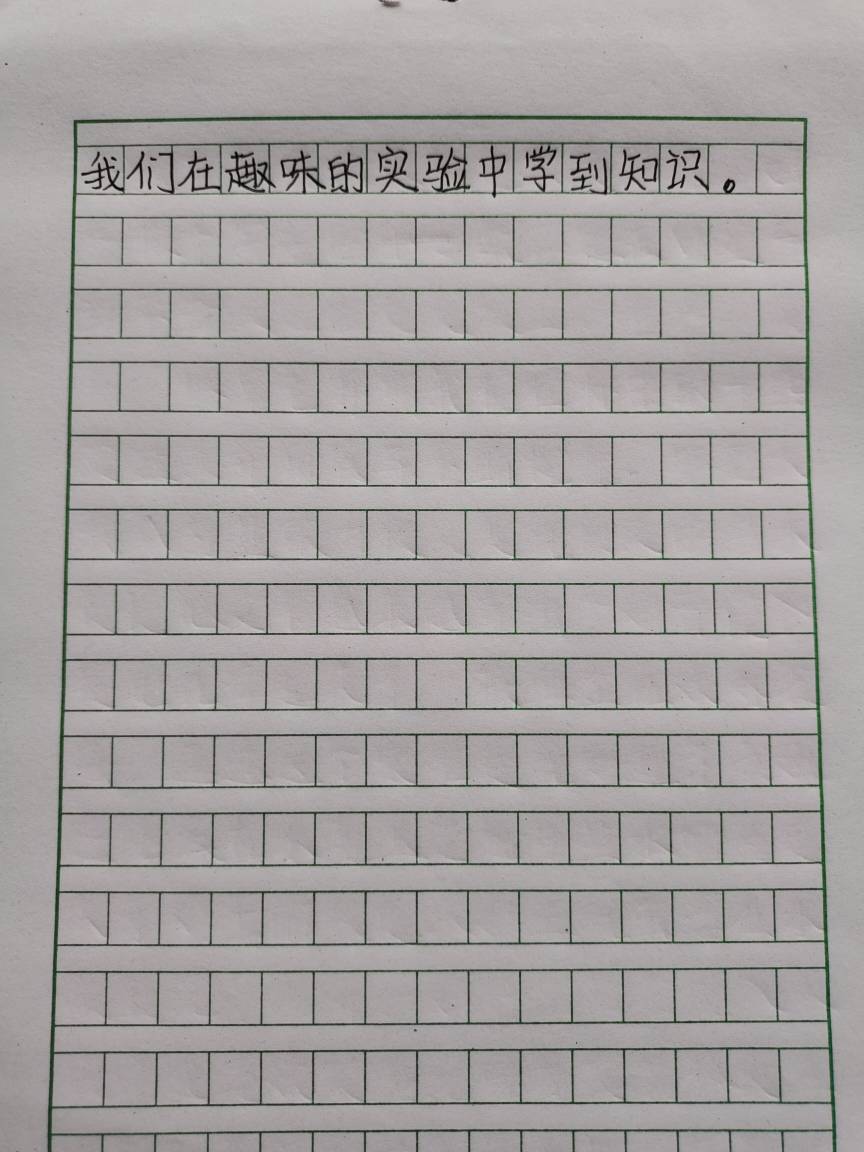 我们在趣味的实验中学到知识。